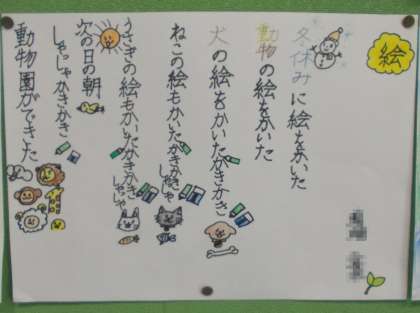 絵
冬休みに絵をかいた
動物の絵をかいた
犬の絵をかいたかきかき
ねこの絵もかいたかきかきしゃしゃ
うさぎの絵もかいたかきかきしゃしゃ
次の日の朝
しゃっしゃかきかき
動物園ができた